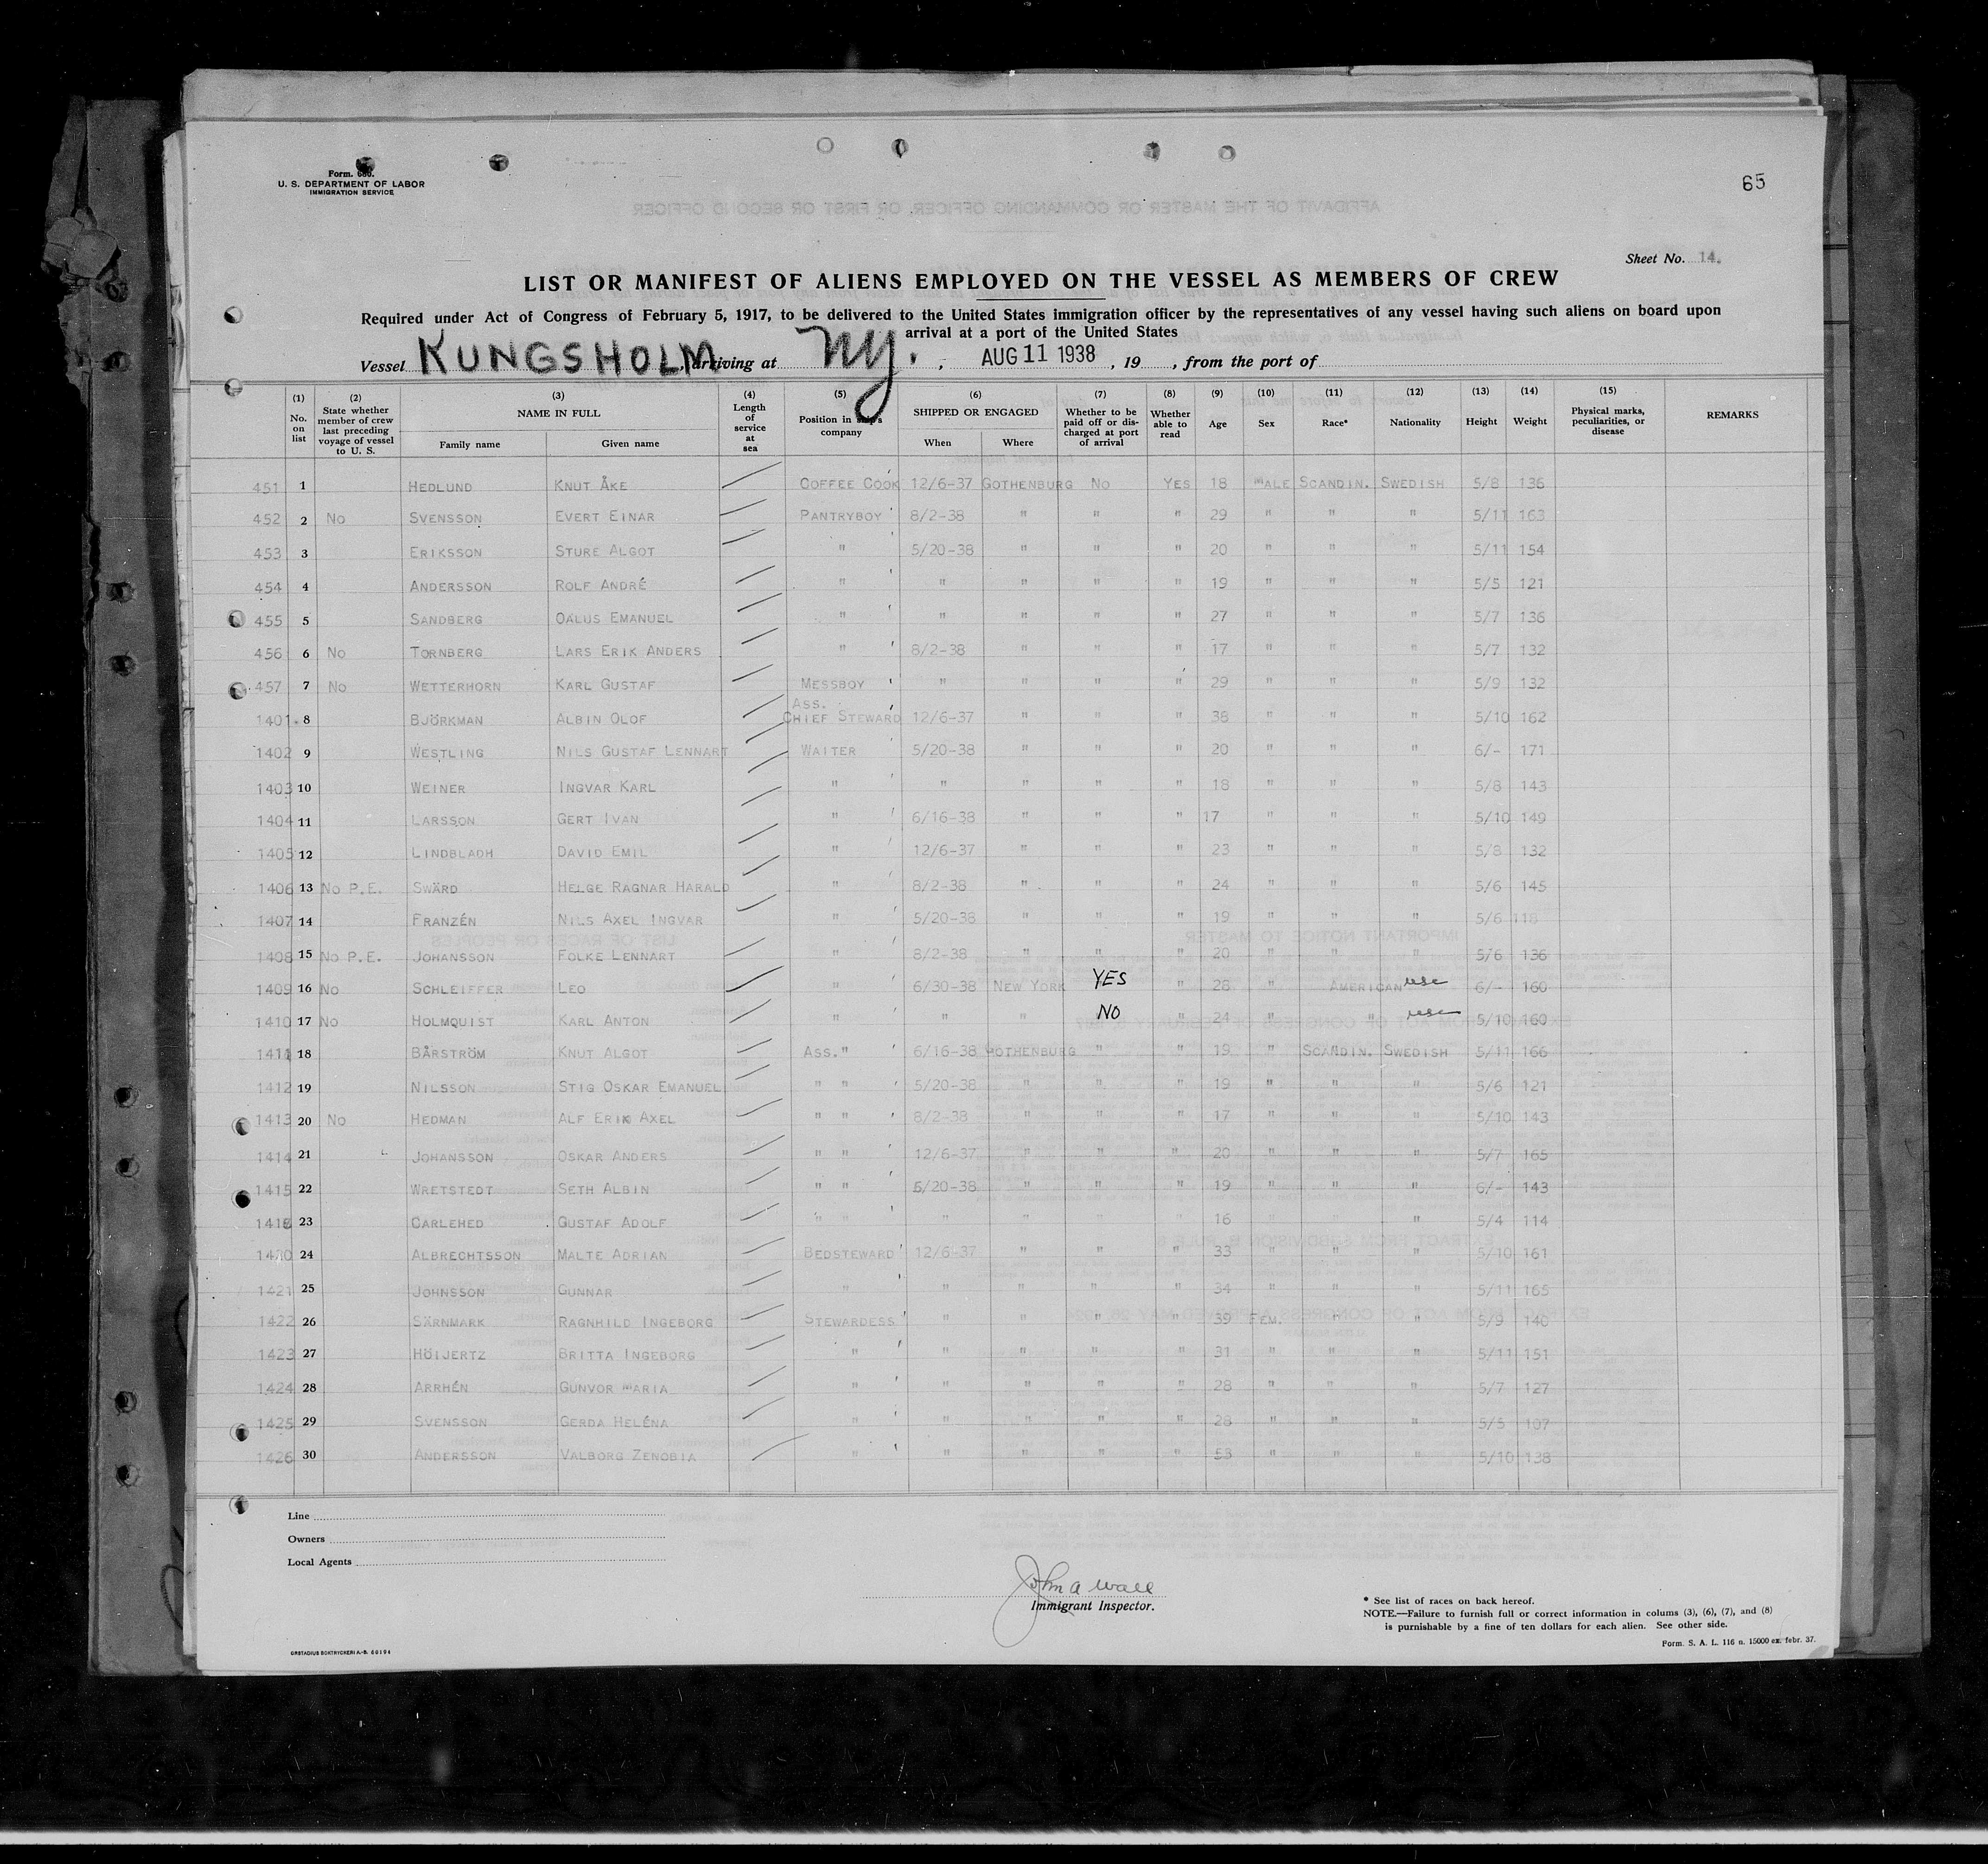 Form. 680.
U. S. DEPARTMENT OF LABOR
IMMIGRATION SERVICE
65
Sheet No. 14.
LIST OR MANIFEST OF ALIENS EMPLOYED ON THE VESSEL AS MEMBERS OF CREW
Required under Act of Congress of February 5, 1917, to be delivered to the United States immigration officer by the representatives of any vessel having such aliens on board upon
arrival at a port of the United States
Vessel KUNGSHOLM, arriving at NY. , AUG 11 1938 , 19 , from the port of
(1) No. on list (2) State whether member of crew last preceding voyage of vessel to U. S. (3) NAME IN FULL Family name Given name (4) Length of service at sea (5) Position in ship's company (6) SHIPPED OR ENGAGED When Where (7) Whether to be paid off or discharged at port of arrival (8) Whether able to read (9) Age (10) Sex (11) Race* (12) Nationality (13) Height (14) Weight (15) Physical marks, peculiarities, or disease REMARKS
451 1 HEDLUND KNUT ÅKE COFFEE COOK 12/6-37 GOTHENBURG NO YES 18 MALE SCANDIN. SWEDISH 5/8 136
452 2 NO SVENSSON EVERT EINAR PANTRYBOY 8/2-38 " " " 29 " " " 5/11 163
453 3 ERIKSSON STURE ALGOT " 5/20-38 " " " 20 " " " 5/11 154
454 4 ANDERSSON ROLF ANDRÉ " " " " " 19 " " " 5/5 121
455 5 SANDBERG OALUS EMANUEL " " " " " 27 " " " 5/7 136
456 6 NO TORNBERG LARS ERIK ANDERS " 8/2-38 " " " 17 " " " 5/7 132
457 7 NO WETTERHORN KARL GUSTAF MESSBOY " " " " 29 " " " 5/9 132
1401 8 BJÖRKMAN ALBIN OLOF ASS. CHIEF STEWARD 12/6-37 " " " 38 " " " 5/10 162
1402 9 WESTLING NILS GUSTAF LENNART WAITER 5/20-38 " " " 20 " " " 6/- 171
1403 10 WEINER INGVAR KARL " " " " " 18 " " " 5/8 143
1404 11 LARSSON GERT IVAN " 6/16-38 " " " 17 " " " 5/10 149
1405 12 LINDBLADH DAVID EMIL " 12/6-37 " " " 23 " " " 5/8 132
1406 13 NO P.E. SWÄRD HELGE RAGNAR HARALD " 8/2-38 " " " 24 " " " 5/6 145
1407 14 FRANZÉN NILS AXEL INGVAR " 5/20-38 " " " 19 " " " 5/6 118
1408 15 NO P.E. JOHANSSON FOLKE LENNART " 8/2-38 " " " 20 " " " 5/6 136
1409 16 NO SCHLEIFFER LEO " 6/30-38 NEW YORK YES " 28 " AMERICAN usc 6/- 160
1410 17 NO HOLMQUIST KARL ANTON " " " NO " 24 " " usc 5/10 160
1411 18 BÅRSTRÖM KNUT ALGOT ASS. " 6/16-38 GOTHENBURG " " 19 " SCANDIN. SWEDISH 5/11 166
1412 19 NILSSON STIG OSKAR EMANUEL " " 5/20-38 " " " 19 " " " 5/6 121
1413 20 NO HEDMAN ALF ERIK AXEL " " 8/2-38 " " " 17 " " " 5/10 143
1414 21 JOHANSSON OSKAR ANDERS " " 12/6-37 " " " 20 " " " 5/7 165
1415 22 WRETSTEDT SETH ALBIN " " 5/20-38 " " " 19 " " " 6/- 143
23 CARLEHED GUSTAF ADOLF " " " " " " 16 " " " 5/4 114
24 ALBRECHTSSON MALTE ADRIAN BEDSTEWARD 12/6-37 " " " 33 " " " 5/10 161
1421 25 JOHNSSON GUNNAR " " " " " 34 " " " 5/11 165
1422 26 SÄRNMARK RAGNHILD INGEBORG STEWARDESS " " " " 39 FEM. " " 5/9 140
1423 27 HÖIJERTZ BRITTA INGEBORG " " " " " 31 " " " 5/11 151
1424 28 ARRHÉN GUNVOR MARIA " " " " " 28 " " " 5/7 127
1425 29 SVENSSON GERDA HELÉNA " " " " " 28 " " " 5/5 107
1426 30 ANDERSSON VALBORG ZENOBIA " " " " " 53 " " " 5/10 138
Line
Owners
Local Agents
John A Wall
Immigrant Inspector.
* See list of races on back hereof.
NOTE.—Failure to furnish full or correct information in colums (3), (6), (7), and (8)
is punishable by a fine of ten dollars for each alien. See other side.
Form. S. A. L. 116 a. 15000 ex. febr. 37.